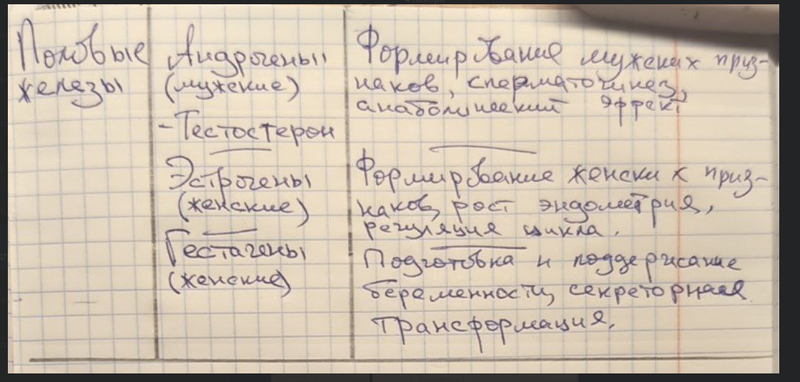 Половые
железы
Андрогены
(мужские)
- Тестостерон
Эстрогены
(женские)
Гестагены
(женские)
Формирование мужских приз-
наков, сперматогинез,
анаболический эффект
Формирование женских приз-
наков, рост эндометрия,
регуляция цикла.
Подготовка и поддержание
беременности, секреторная
трансформация.